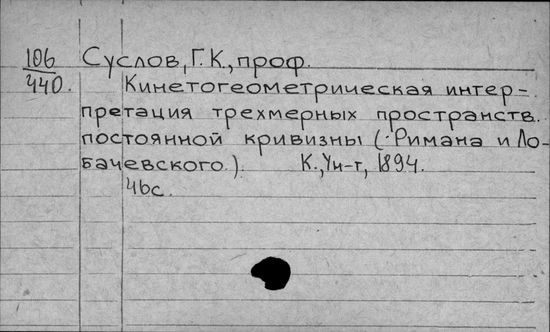 106 Суслов, Г.К., проф.
440. Кинетогеометрическая интер-
претация трехмерных пространств.
постоянной кривизны (Римана и Ло-
бачевского.) К., Ун-т, 1894.
46с.